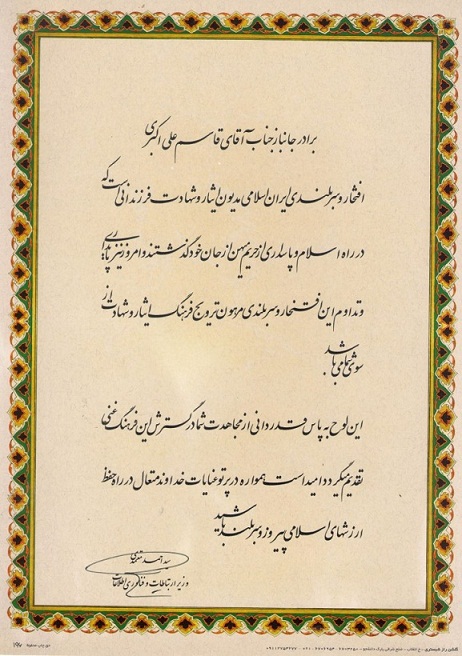 برادر جانباز جناب آقای قاسم علی اکبری
افتخار و سربلندی ایران اسلامی مدیون ایثار و شهادت فرزندانی است که
در راه اسلام و پاسداری از حریم میهن از جان خود گذشتند و امروز نیز پایداری
و تداوم این افتخار و سربلندی مرهون ترویج فرهنگ ایثار و شهادت از
سوی شما می باشد
این لوح به پاس قدردانی از مجاهدت شما در گسترش این فرهنگ غنی
تقدیم میگردد امید است همواره در پرتو عنایات خداوند متعال در راه حفظ
ارزشهای اسلامی پیروز و سربلند باشید
سید احمد معتمدی
وزیر ارتباطات و فناوری اطلاعات